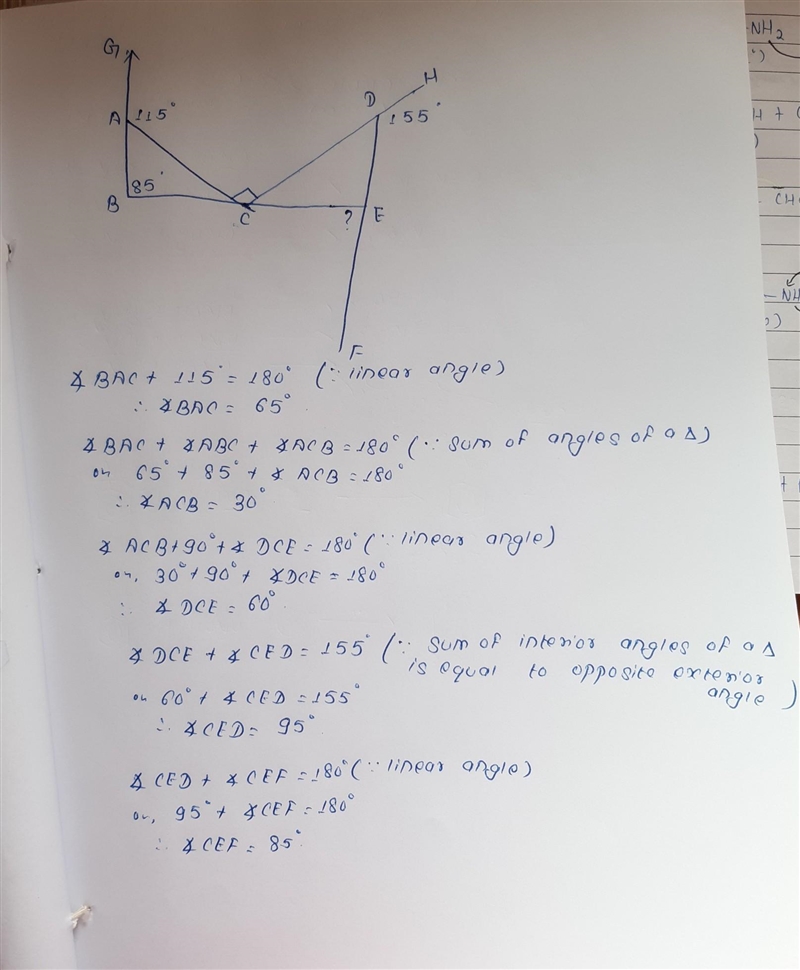 G
A 115°
B 85°
C
D
H
155°
? E
F
∡BAC + 115° = 180° (∵ linear angle)
∴ ∡BAC = 65°
∡BAC + ∡ABC + ∡ACB = 180° (∵ Sum of angles of a Δ)
or 65° + 85° + ∡ACB = 180°
∴ ∡ACB = 30°
∡ACB + 90° + ∡DCE = 180° (∵ linear angle)
or, 30° + 90° + ∡DCE = 180°
∴ ∡DCE = 60°
∡DCE + ∡CED = 155° (∵ Sum of interior angles of a Δ
is equal to opposite exterior
angle)
or 60° + ∡CED = 155°
∴ ∡CED = 95°
∡CED + ∡CEF = 180° (∵ linear angle)
or, 95° + ∡CEF = 180°
∴ ∡CEF = 85°
NH₂
H +
CH
- NH